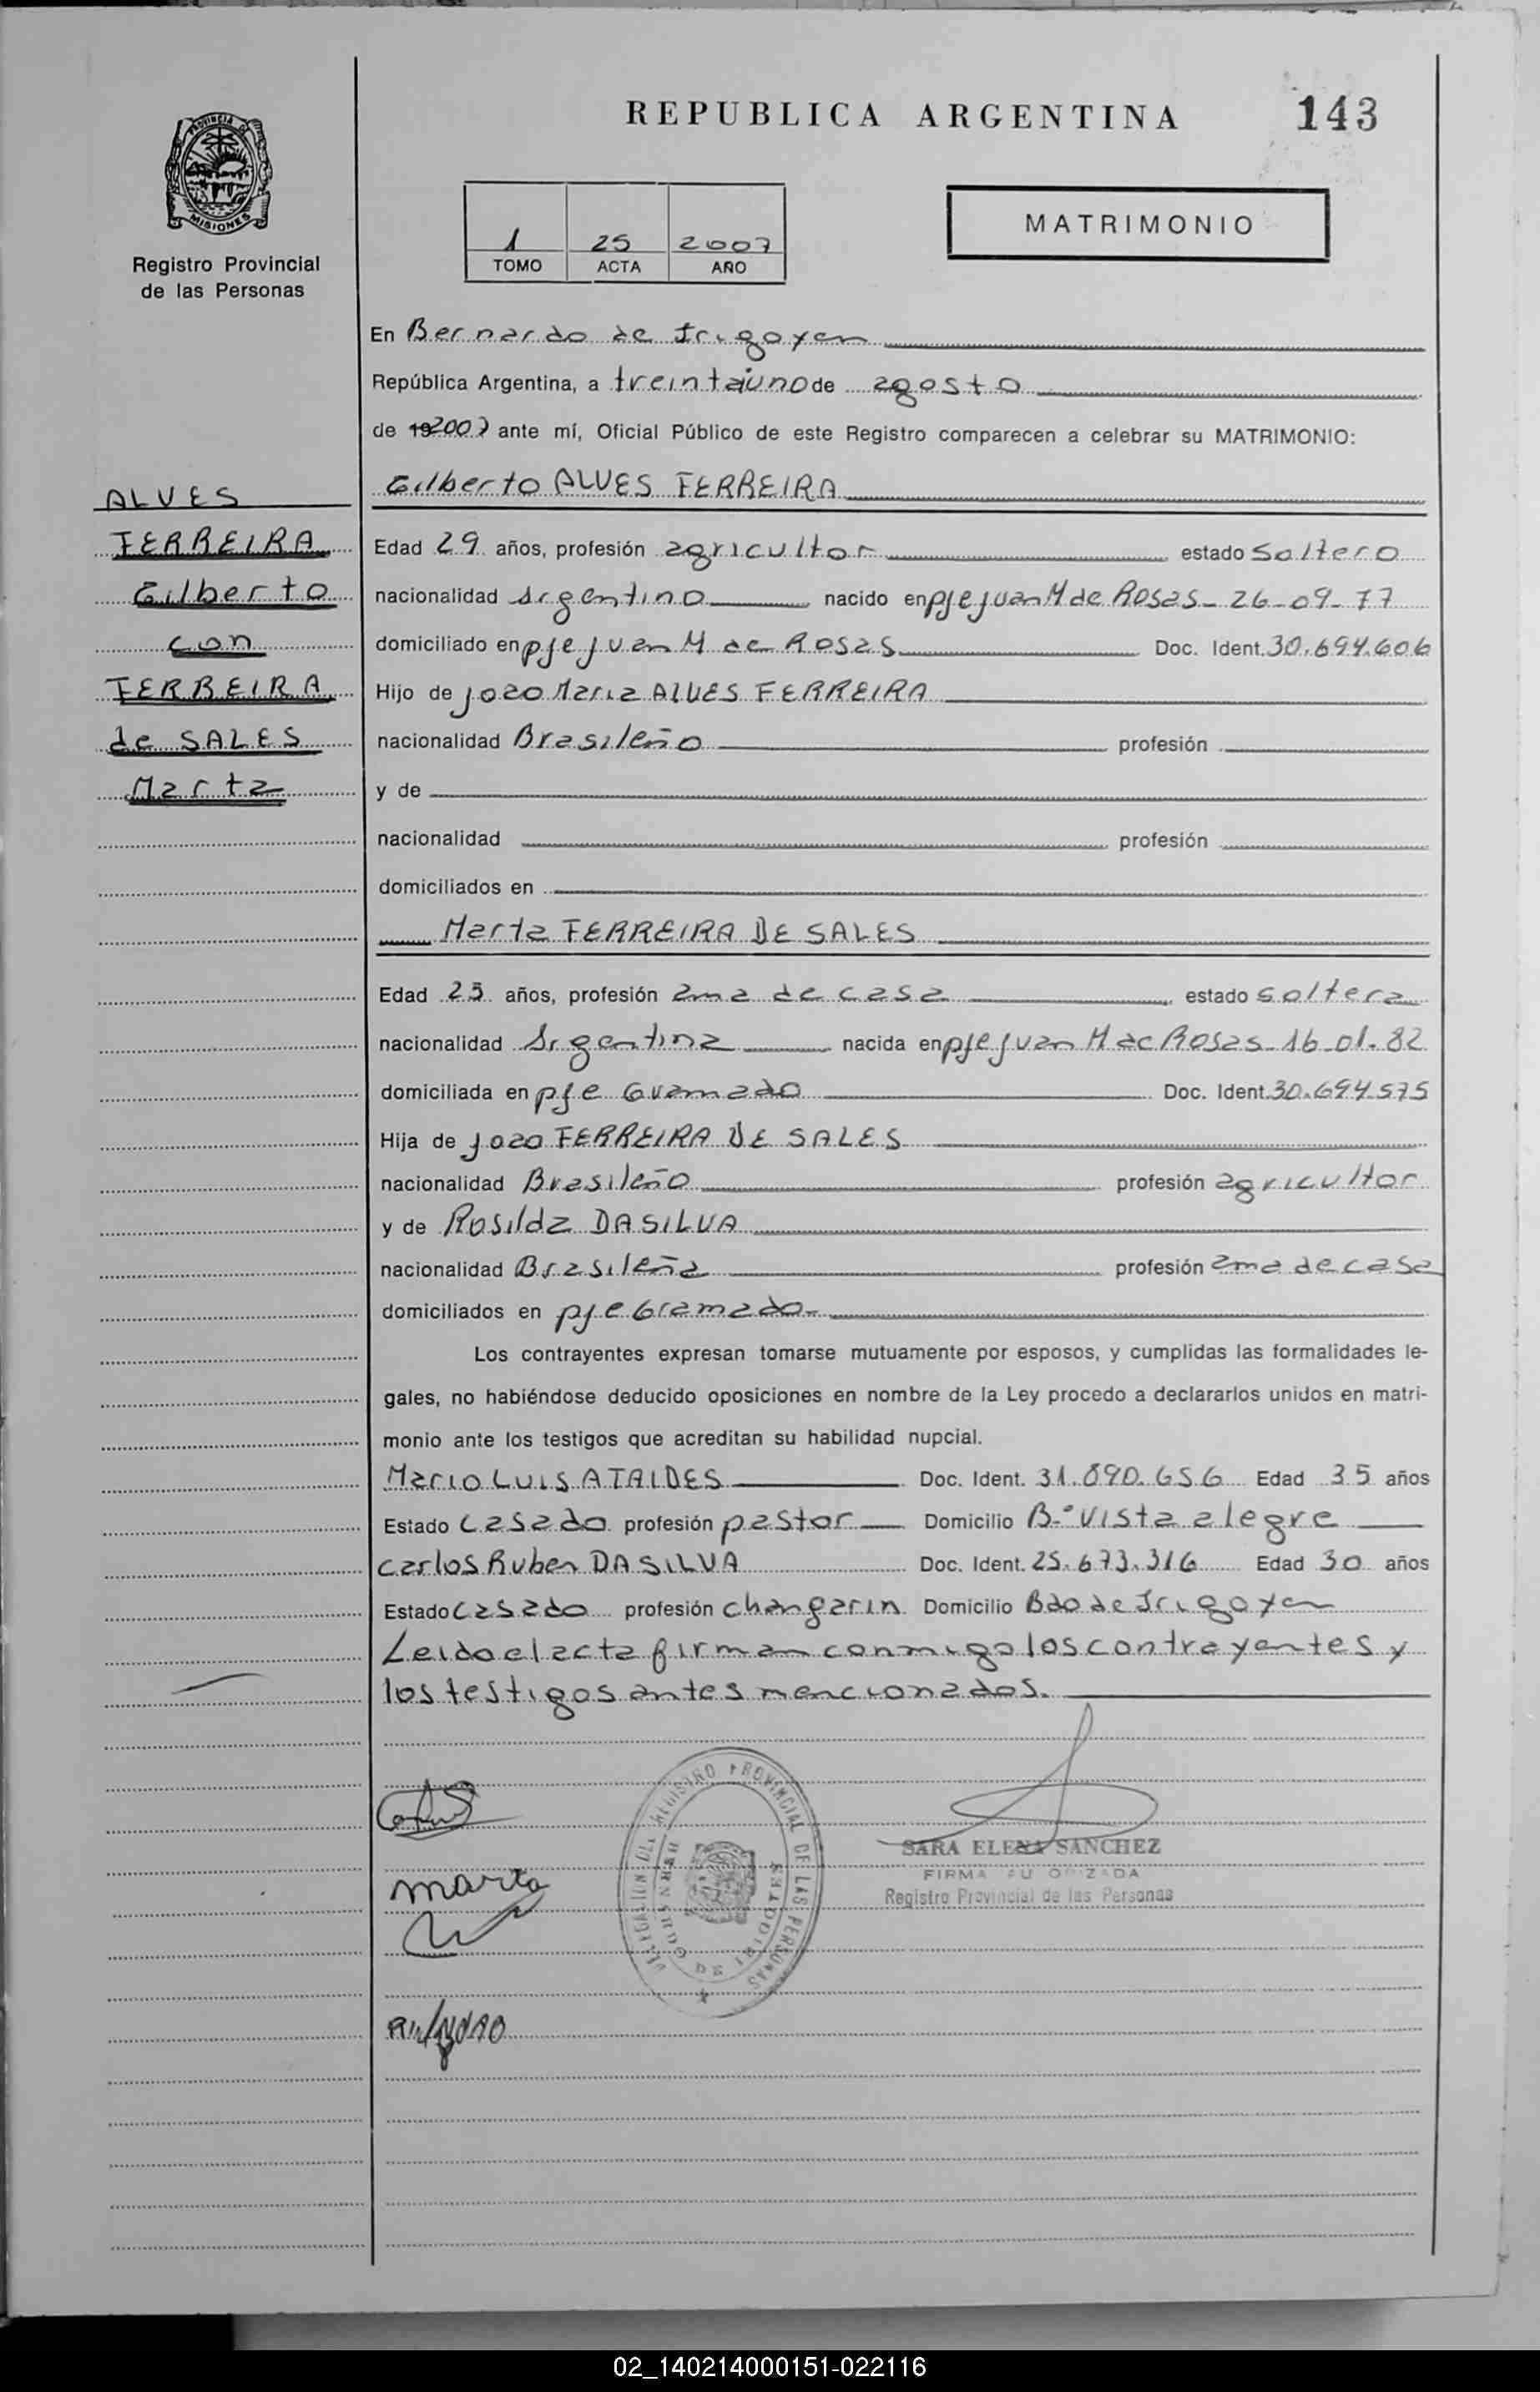 REPUBLICA ARGENTINA
143
PROVINCIA DE
MISIONES
Registro Provincial
de las Personas
1 25 2007
TOMO ACTA AÑO
MATRIMONIO
En Bernardo de Irigoyen
República Argentina, a treintaiuno de agosto
de 19 2007 ante mí, Oficial Público de este Registro comparecen a celebrar su MATRIMONIO:
ALVES
FERREIRA
Gilberto
con
FERREIRA
de SALES
Marta
Gilberto ALVES FERREIRA
Edad 29 años, profesión agricultor estado Soltero
nacionalidad Argentino nacido en pje Juan M de Rosas - 26-09-77
domiciliado en pje Juan M de Rosas Doc. Ident. 30.694.606
Hijo de Joao Maria ALVES FERREIRA
nacionalidad Brasileño profesión
y de
nacionalidad profesión
domiciliados en
Marta FERREIRA DE SALES
Edad 25 años, profesión ama de casa estado soltera
nacionalidad Argentina nacida en pje Juan M de Rosas - 16-01-82
domiciliada en pje Guamado Doc. Ident. 30.694.575
Hija de Joao FERREIRA DE SALES
nacionalidad Brasileño profesión agricultor
y de Rosilda DA SILVA
nacionalidad Brasileña profesión ama de casa
domiciliados en pje Gramado-
Los contrayentes expresan tomarse mutuamente por esposos, y cumplidas las formalidades le-
gales, no habiéndose deducido oposiciones en nombre de la Ley procedo a declararlos unidos en matri-
monio ante los testigos que acreditan su habilidad nupcial.
Mario LUIS ATAIDES Doc. Ident. 31.890.656 Edad 35 años
Estado casado profesión pastor Domicilio B-º Vista alegre
Carlos Ruben DA SILVA Doc. Ident. 25.673.316 Edad 30 años
Estado casado profesión changarin Domicilio Bdo de Irigoyen
Leido el acta firman conmigo los contrayentes y
los testigos antes mencionados.
DELEGACION DEL REGISTRO PROVINCIAL DE LAS PERSONAS
BERNARDO DE IRIGOYEN
SARA ELENA SANCHEZ
FIRMA AUTORIZADA
Registro Provincial de las Personas
marta
02_140214000151-022116